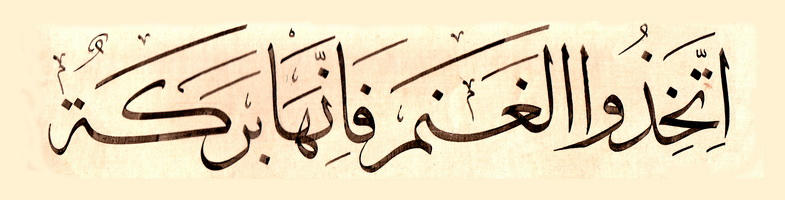 اِتَّخِذُوا الْغَنَمَ فَاِنَّهَا بَرَكَةٌ